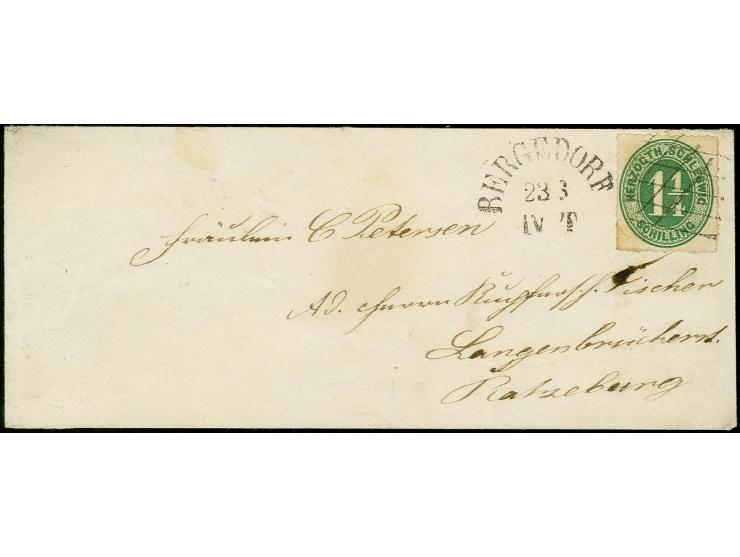 BERGEDORF
23 3
IV
HERZOGTH. SCHLESWIG
1 1/4
SCHILLING
Fräulein C Petersen
Ad. Herrn Fischer
Langenbrückerst.
Ratzeburg